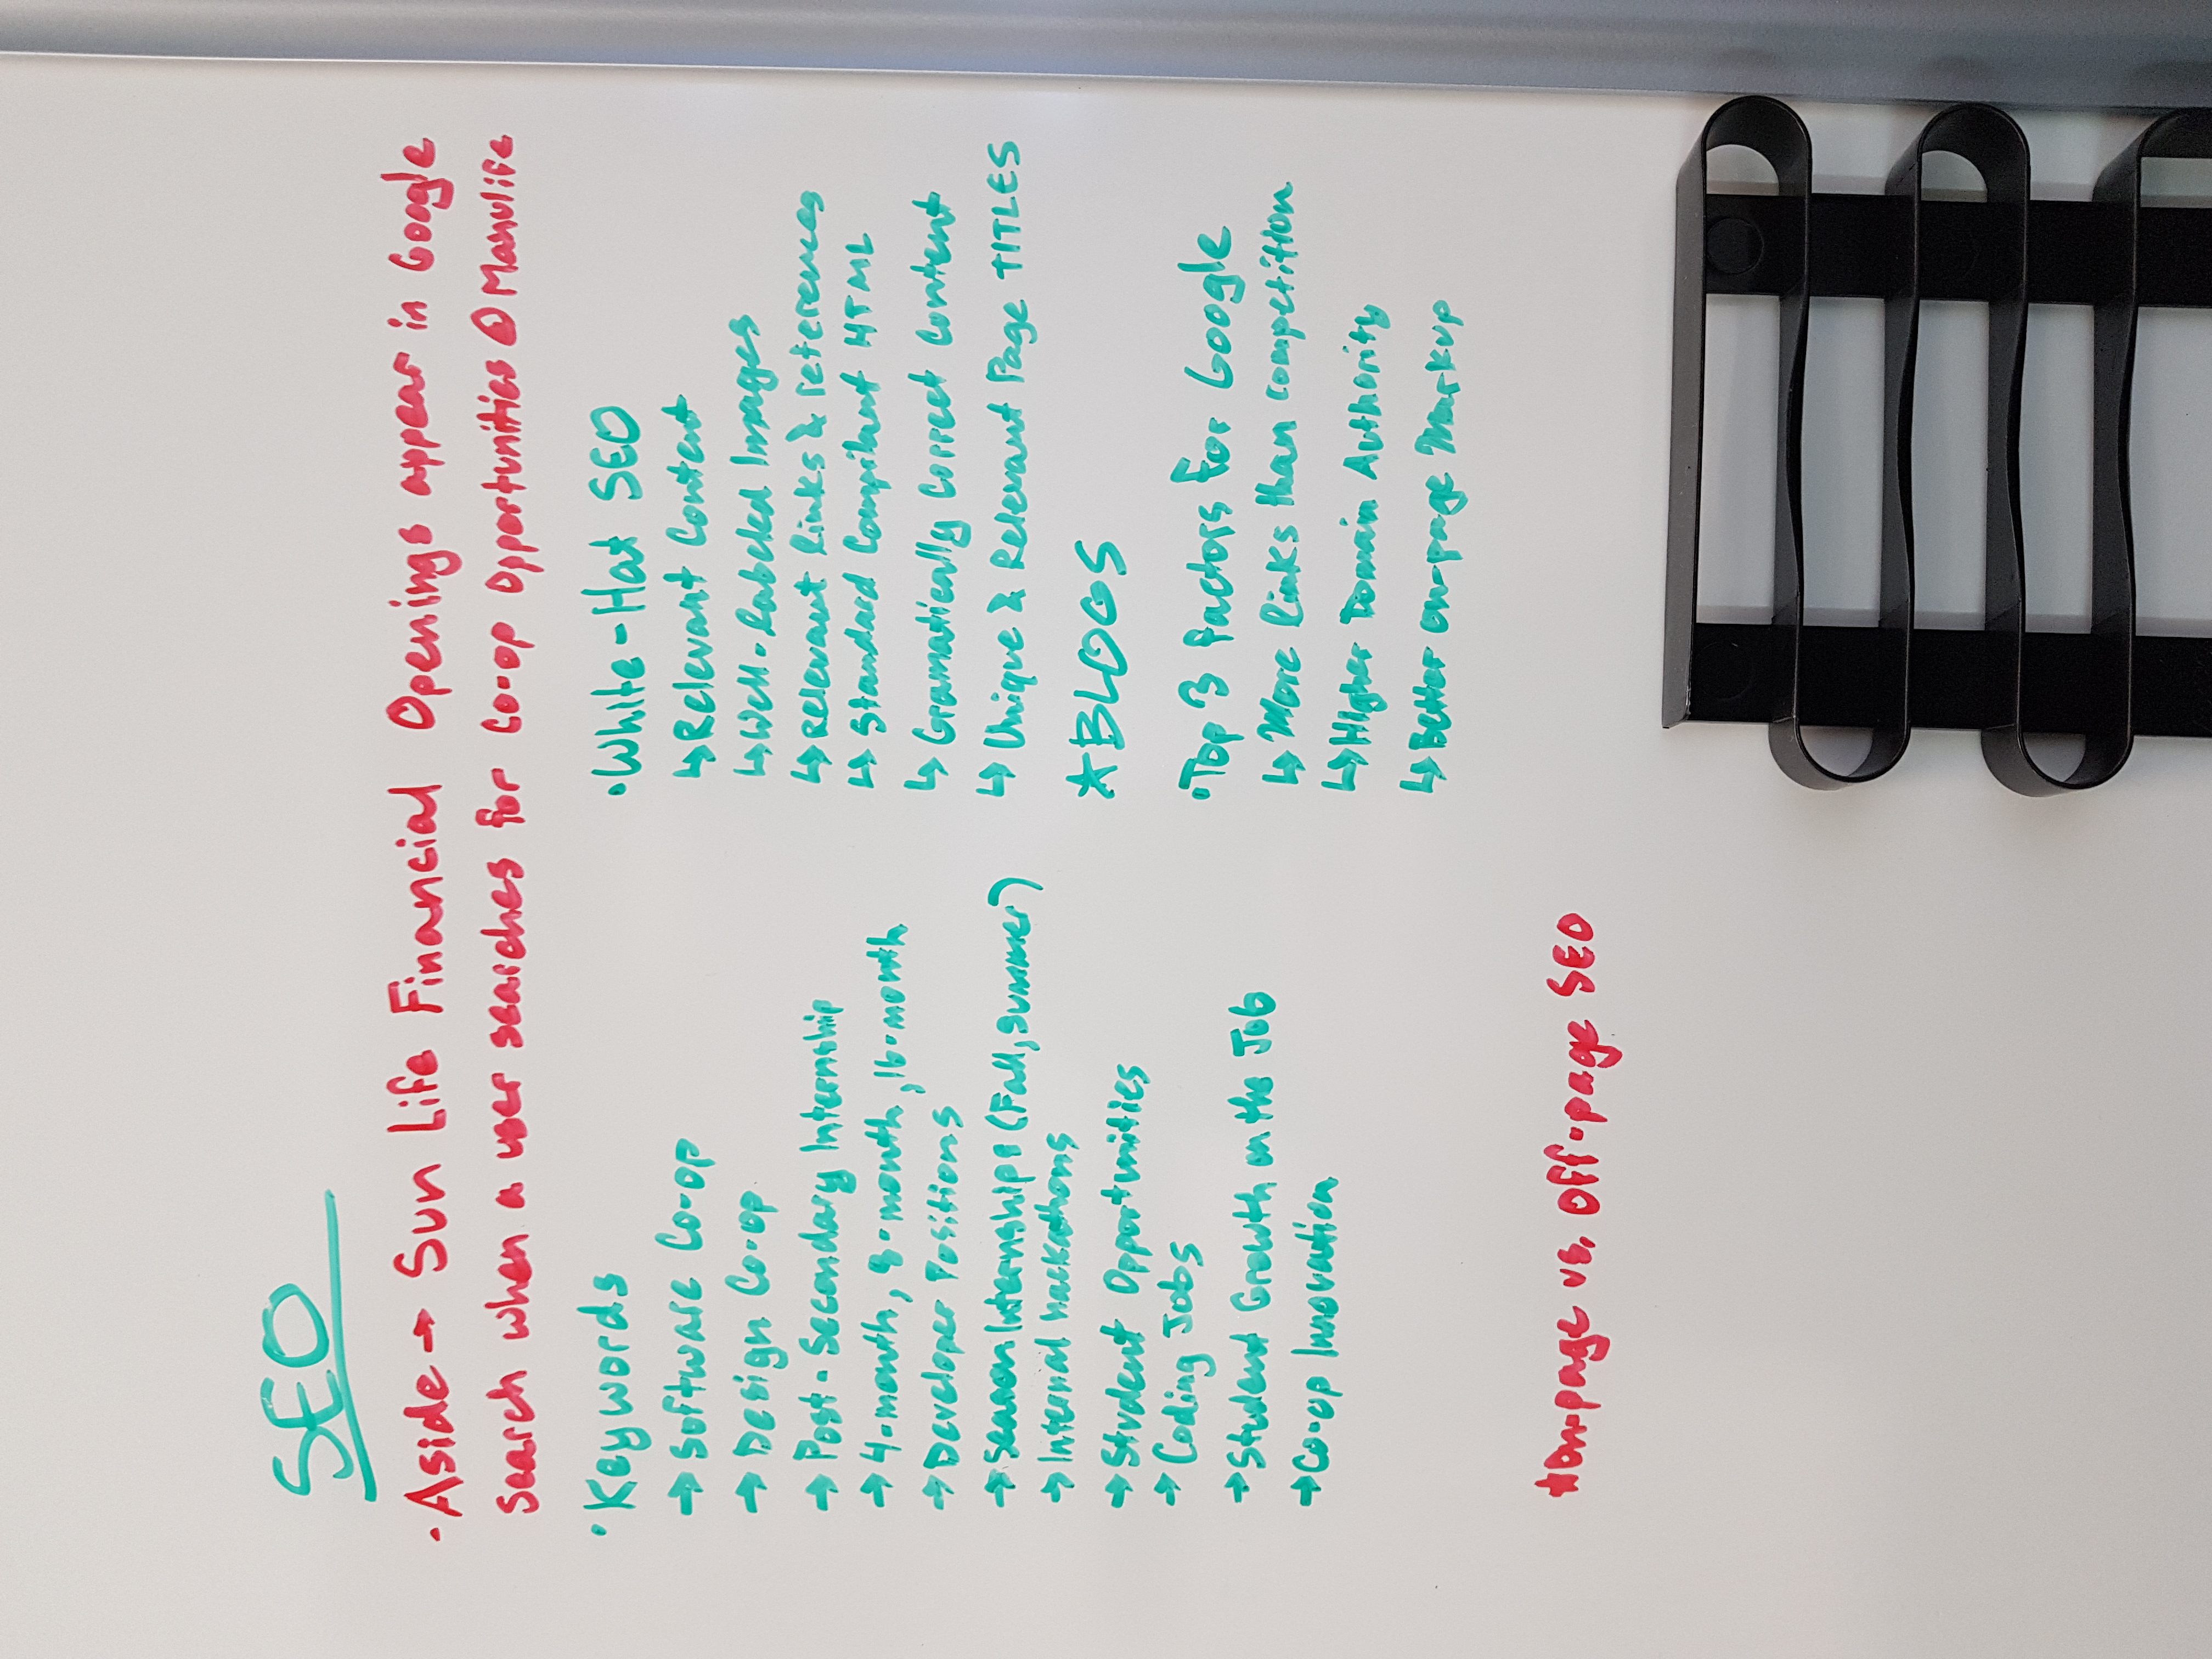 SEO
• Aside → Sun Life Financial Openings appear in Google
search when a user searches for Co-op Opportunities @ Manulife
• Keywords
→ Software Co-op
→ Design Co-op
→ Post-Secondary Internship
→ 4-month, 8-month, 16-month
→ Developer Positions
→ Season Internships (Fall, Summer)
→ Internal hackathons
→ Student Opportunities
→ Coding Jobs
→ Student Growth on the Job
→ Co-op Innovation
• White-Hat SEO
↳ Relevant Content
↳ Well-labeled Images
↳ Relevant links & references
↳ Standard Compilant HTML
↳ Gramatically Correct Content
↳ Unique & Relevant Page TITLES
★ BLOGS
• Top 3 factors for Google
↳ More links than competition
↳ Higher Domain Authority
↳ Better on-page Markup
★ On-page vs. Off-page SEO